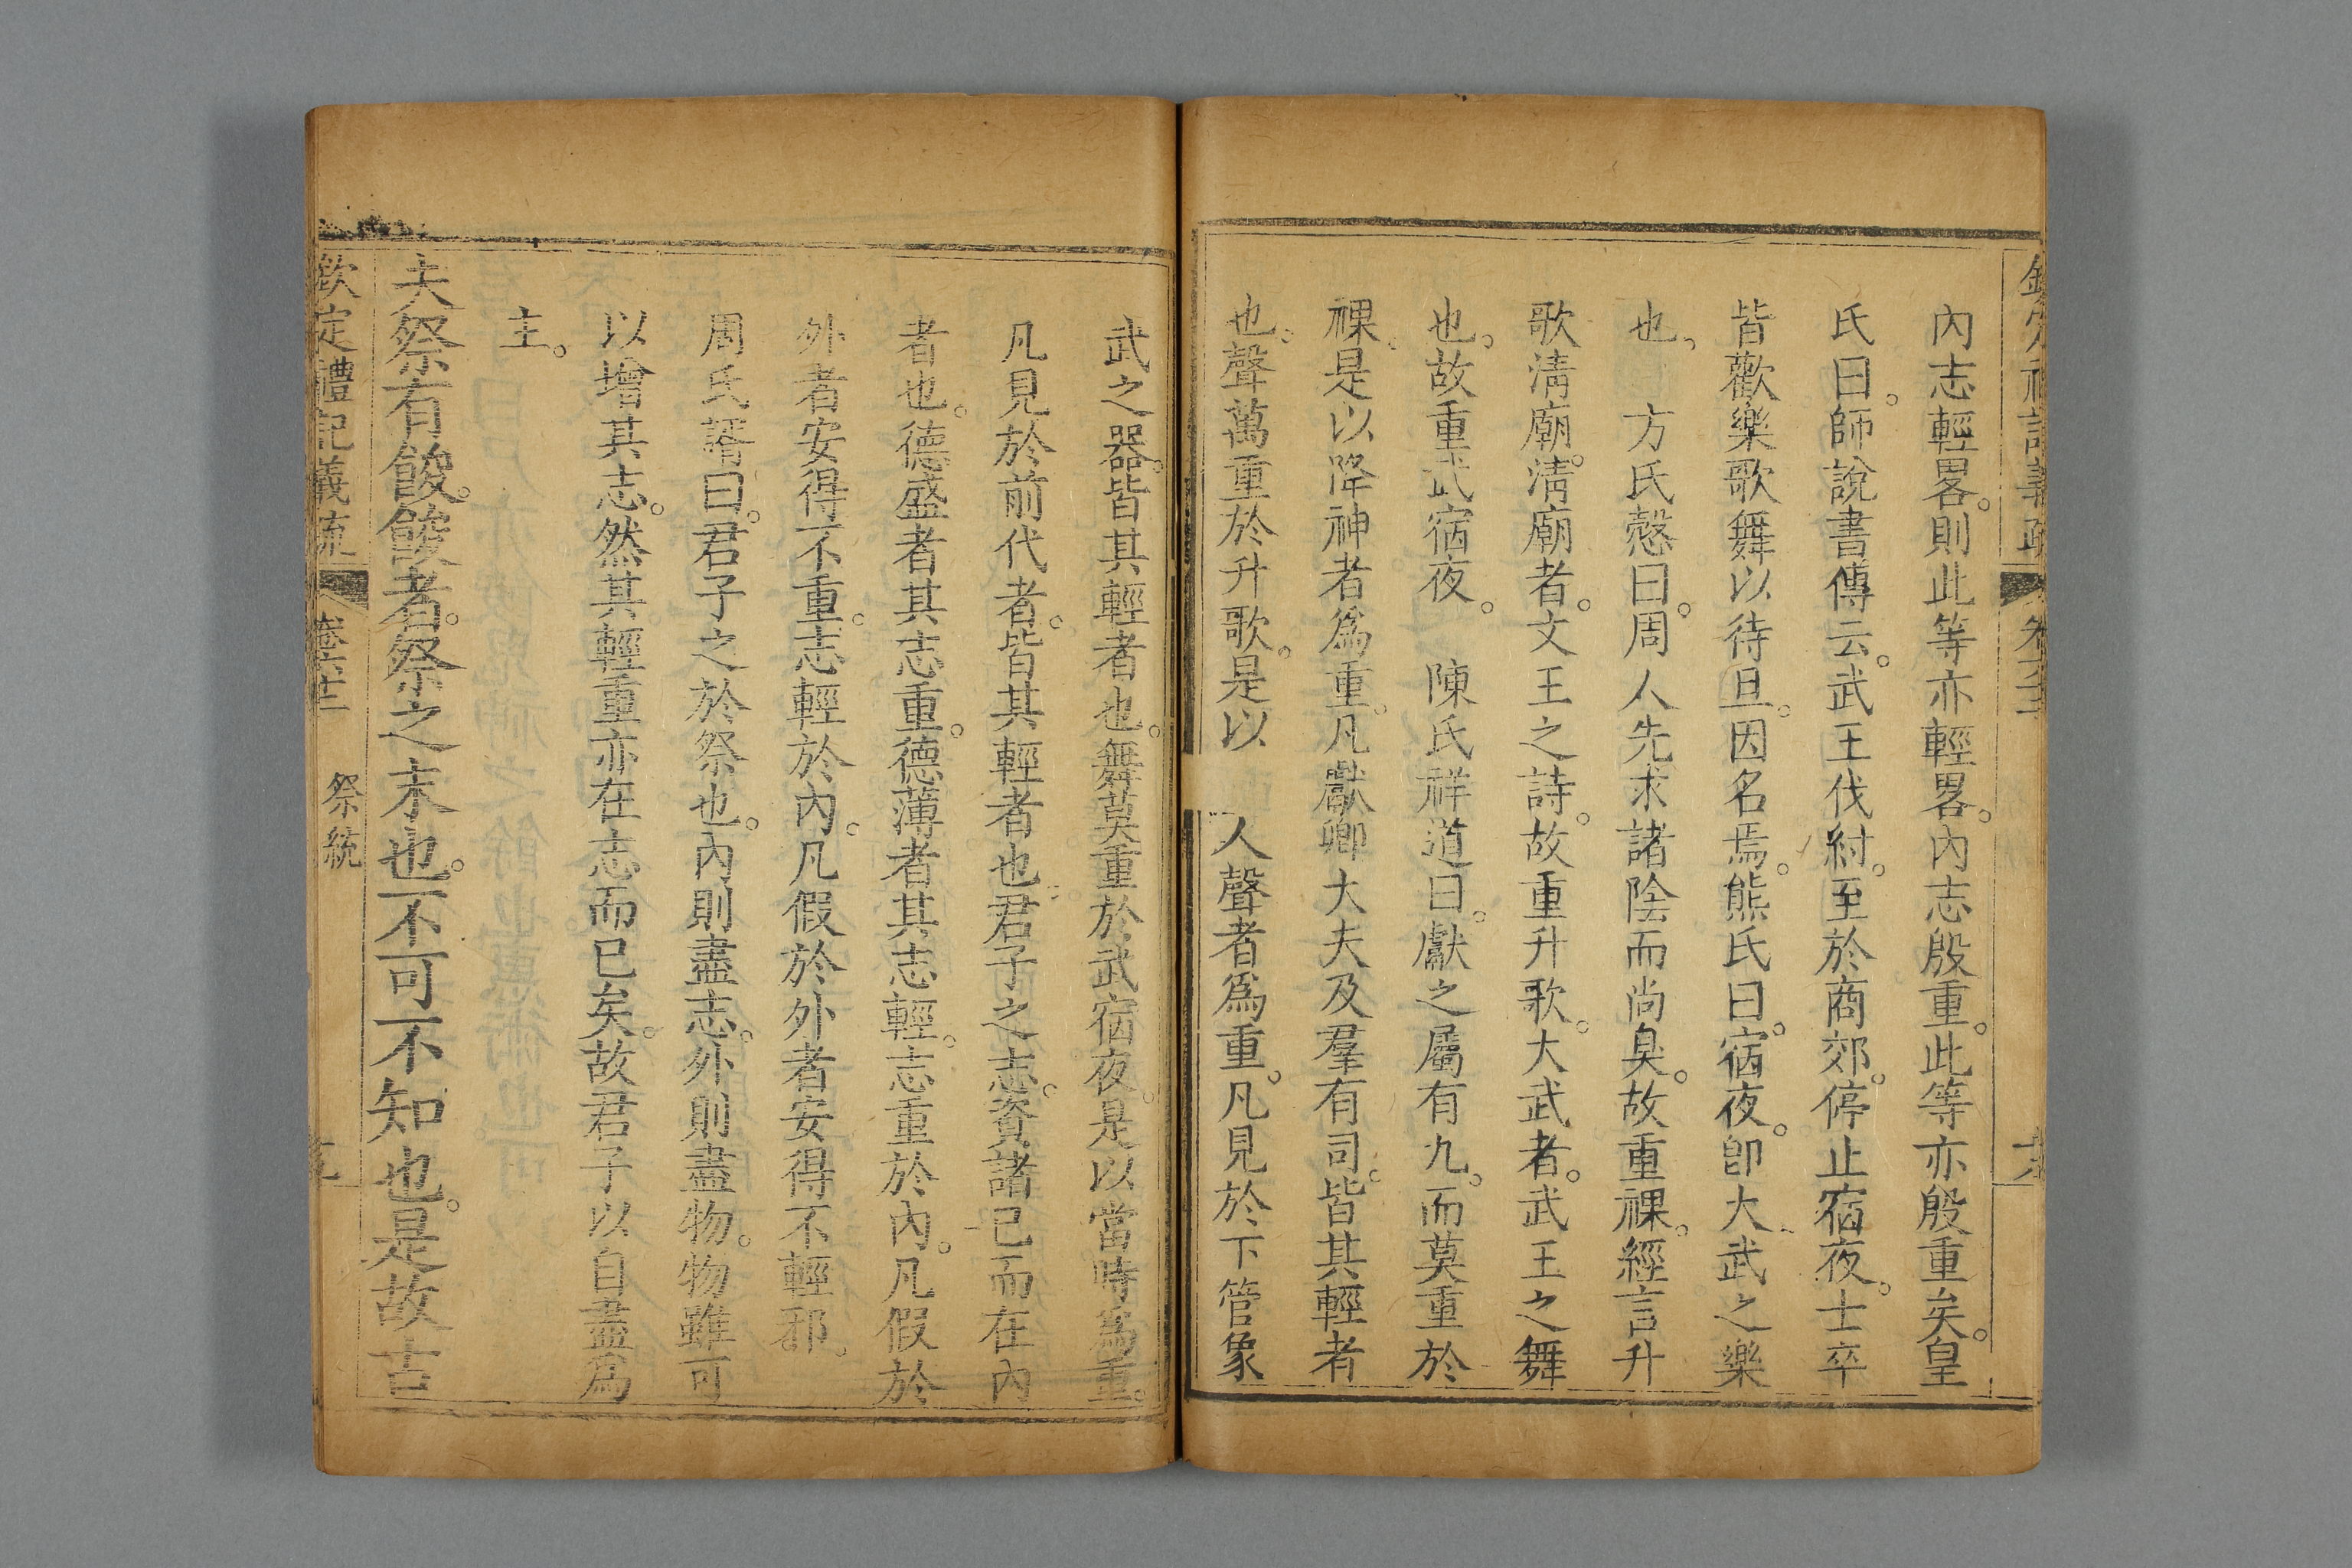 內志輕畧。則此等亦輕畧。內志殷重。此等亦殷重矣。皇
氏曰。師說書傳云。武王伐紂。至於商郊。停止宿夜。士卒
皆歡樂歌舞以待旦。因名焉。熊氏曰。宿夜。卽大武之樂
也。 方氏慤曰。周人先求諸陰而尚臭。故重祼。經言升
歌淸廟。淸廟者。文王之詩。故重升歌。大武者。武王之舞
也。故重武宿夜。 陳氏祥道曰。獻之屬有九。而莫重於
祼。是以降神者爲重。凡獻卿大夫及羣有司。皆其輕者
也。聲萬重於升歌。是以 人聲者爲重。凡見於下管象
武之器。皆其輕者也。舞莫重於武宿夜。是以當時爲重。
凡見於前代者。皆其輕者也。君子之志。資諸己而在內
者也。德盛者其志重。德薄者其志輕。志重於內。凡假於
外者安得不重。志輕於內。凡假於外者安得不輕邪。
周氏諝曰。君子之於祭也。內則盡志。外則盡物。物雖可
以增其志。然其輕重亦在志而已矣。故君子以自盡爲
主。
夫祭有餕。餕者。祭之末也。不可不知也。是故古
欽定禮記義疏 卷六十三 祭統